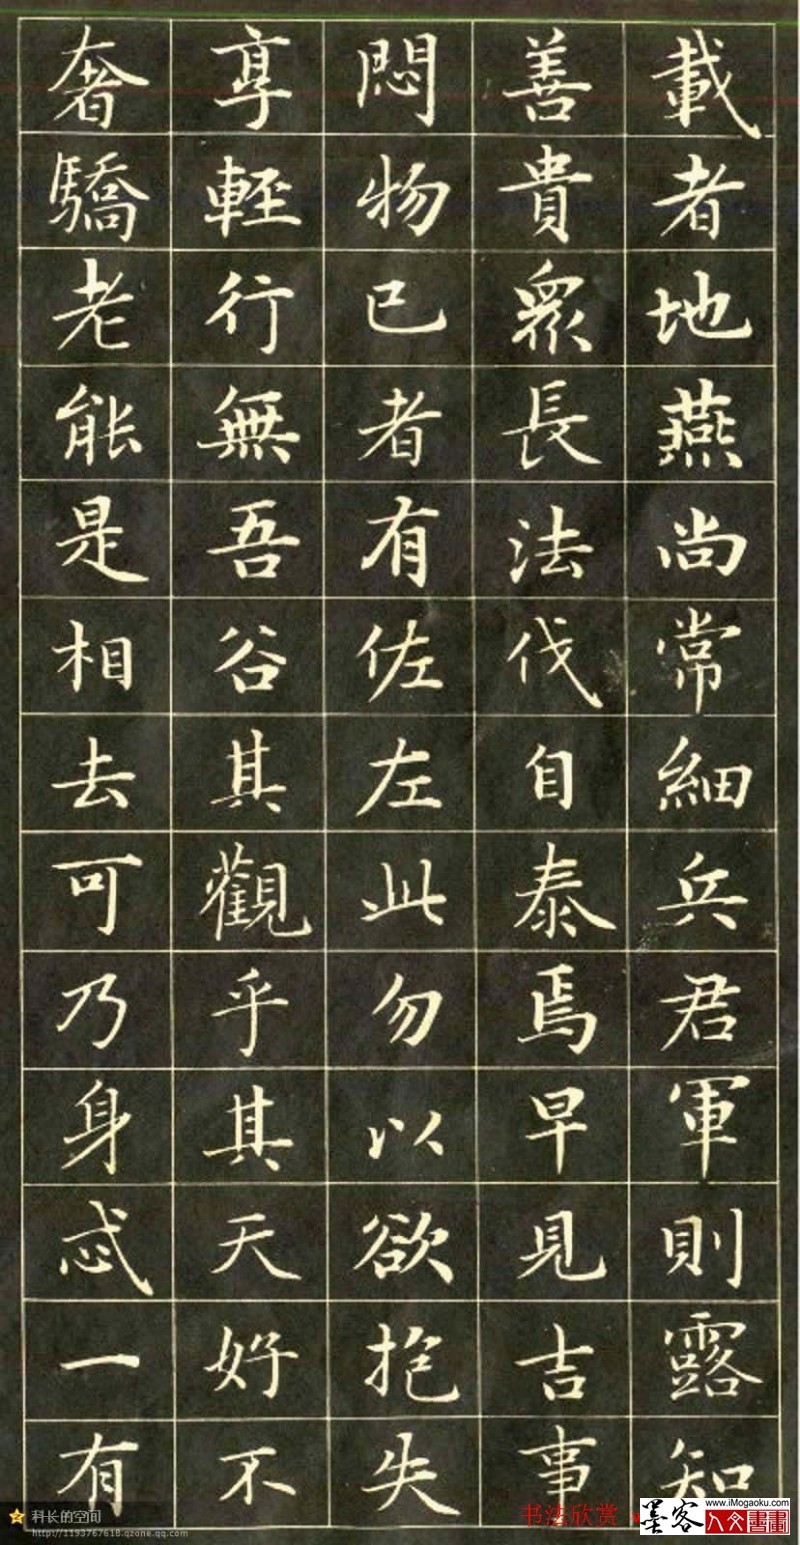 載者地燕尚常細兵君軍則露知
善貴眾長法伐自泰焉早見吉事
悶物已者有佐左此勿以欲抱失
享輕行無吾谷其觀乎其天好不
奢驕老能是相去可乃身忒一有
科长的空间
http://1193767618.qzone.qq.com
书法欣赏
www.iMogaoku.com
墨客
人文書畫